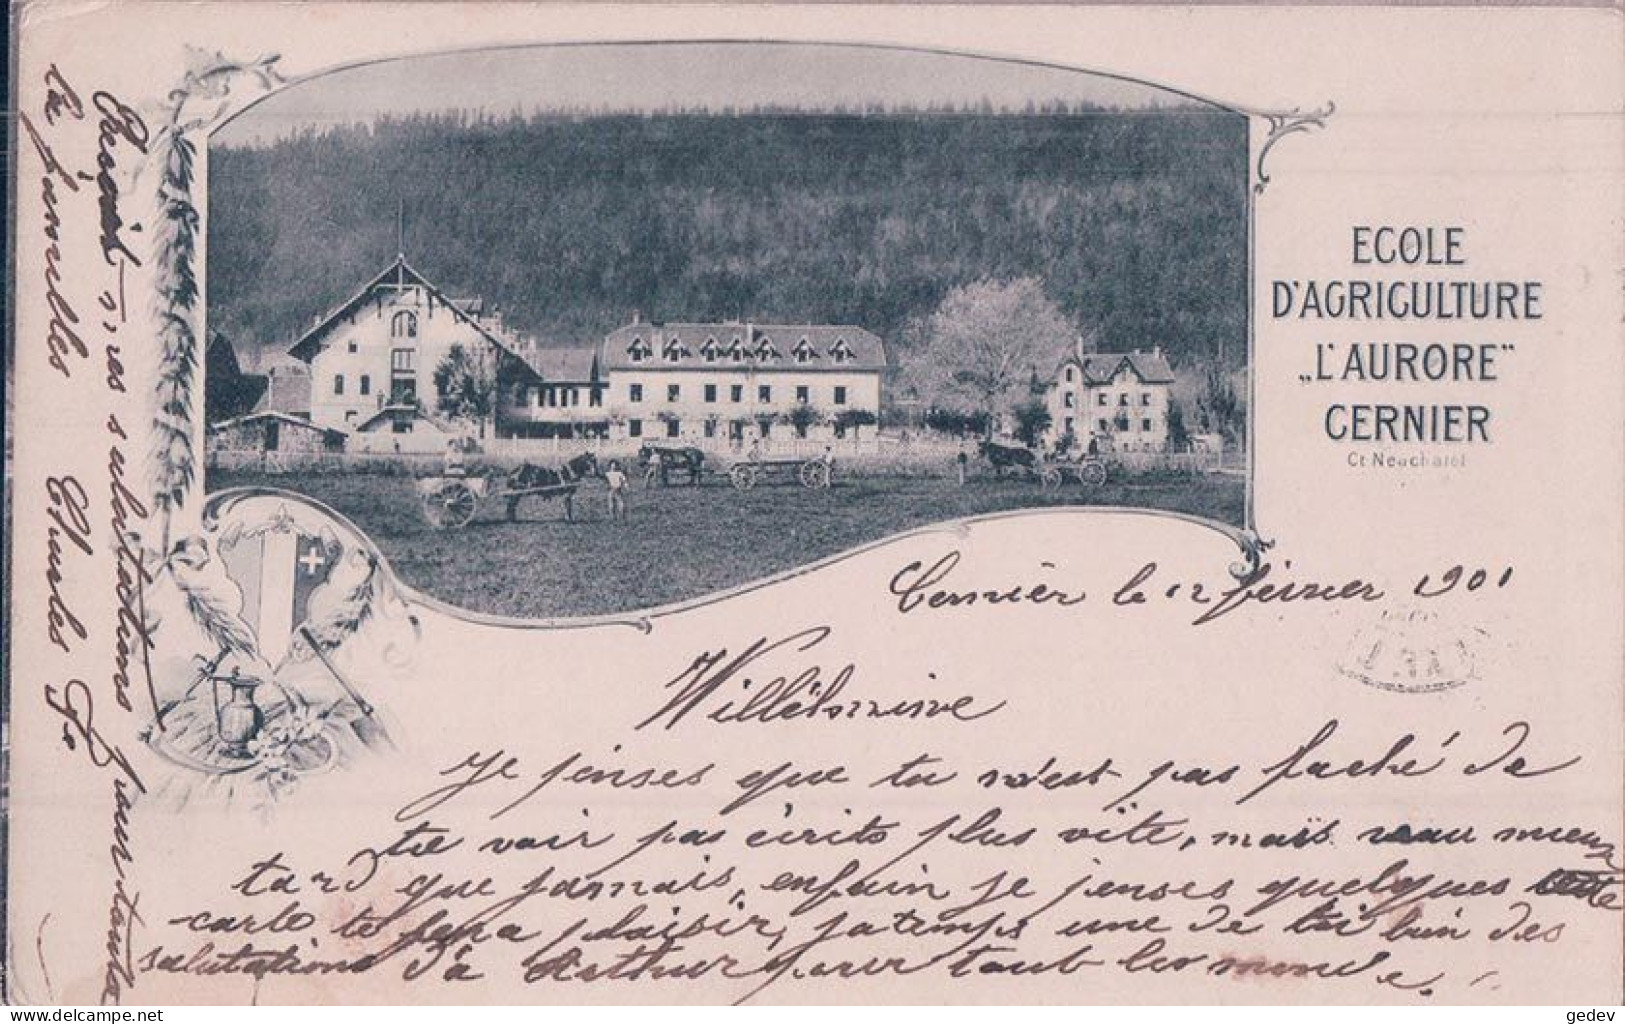 ECOLE
D'AGRICULTURE
„L'AURORE"
CERNIER
Ct Neuchatel
Cernièr le 12 février 1901
Willèlmine
Je penses que tu n'est pas faché de
te voir pas écrits plus vîte, mais veau mieux
tard que jamais, enfain je penses quelques cette
carte te fera plaisir, jatemps une de toi bien des
salutations d'a Arthur pour tout les monde.
Reçoit mes salutations pour toute
la familles Charles F.
gedev